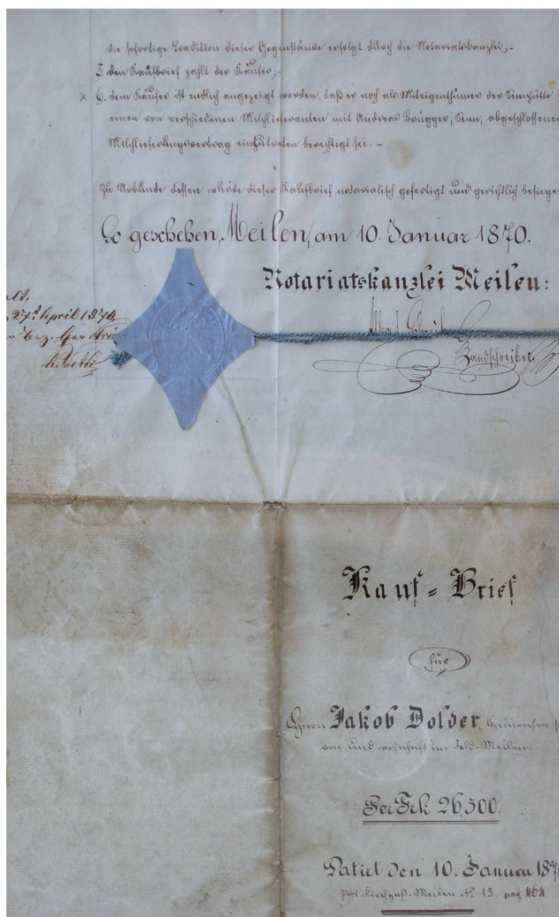 die sofortige Tradition dieser Gegenstände erfolgt durch die Notariatskanzlei;-
5. den Kaufbrief zahlt der Käufer;-
6. dem Käufer ist endlich angezeigt worden, daß er noch als Miteigenthümer der Sennhütte
einen von verschiedenen Milchlieferanten mit Andreas Brügger, Senn, abgeschlossenen
Milchlieferungsvertrag einzutreten berechtigt sei. -
Zu Urkunde dessen wurde dieser Kaufbrief notarialisch gefertigt und gerichtlich besiegel
So geschehen, Meilen, am 10. Januar 1870.
Notariatskanzlei Meilen:
27. April 1874
Landschreiber
Kauf = Brief
für
Herrn Jakob Dolder
von und wohnhaft im Feld-Meilen.
Per Frk 26,500.
Datirt den 10. Januar 187
Meilen No 13. pag 464.